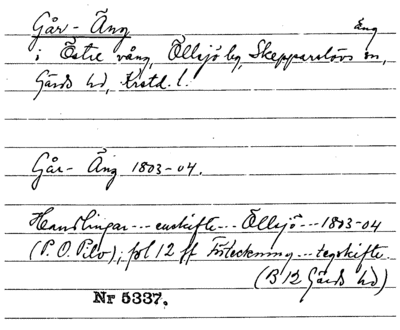 Går-Äng Äng
i Östre vång, Öllsjö by, Skepparslövs sn,
Gärds hd, Krstd. l.
Går-Äng 1803-04.
Handlingar --- enskifte -- Öllsjö --- 1803-04
(P. O. Pilo); fol 12 ff Förteckning --- tegskifte
(B 12 Gärds hd)
Nr 5337.